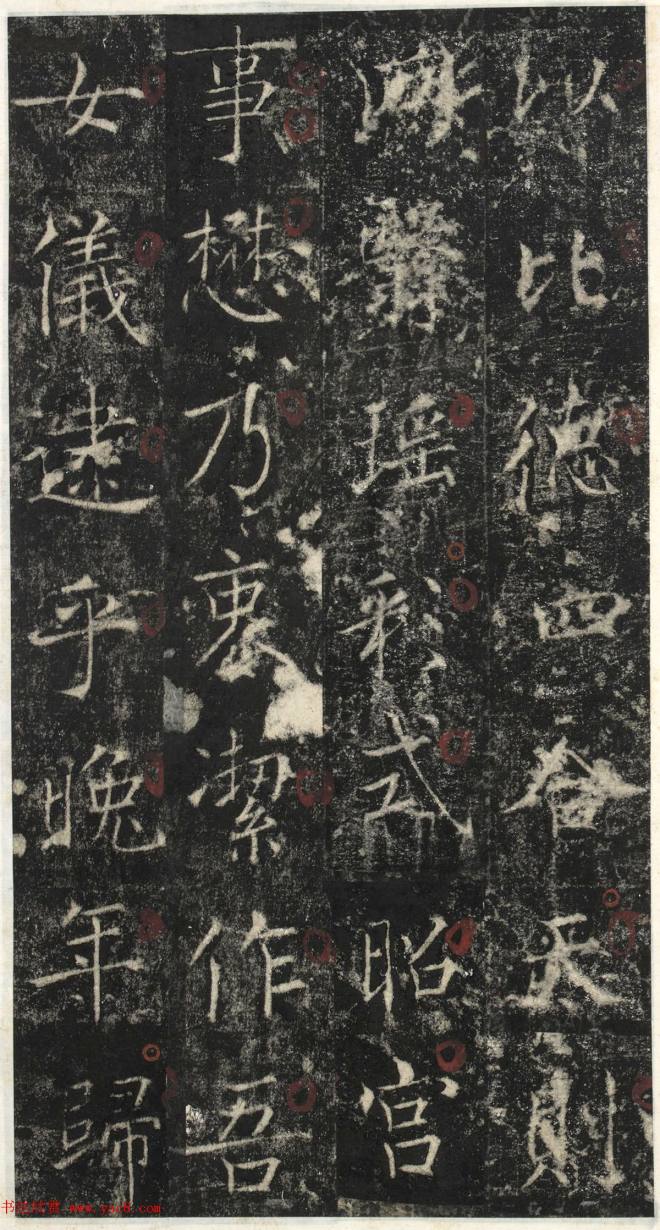 以比德四天則
瑶彩式昭宫
事懋乃衷潔作吾
女儀逮乎晚年歸
书法欣赏 www.yac8.com